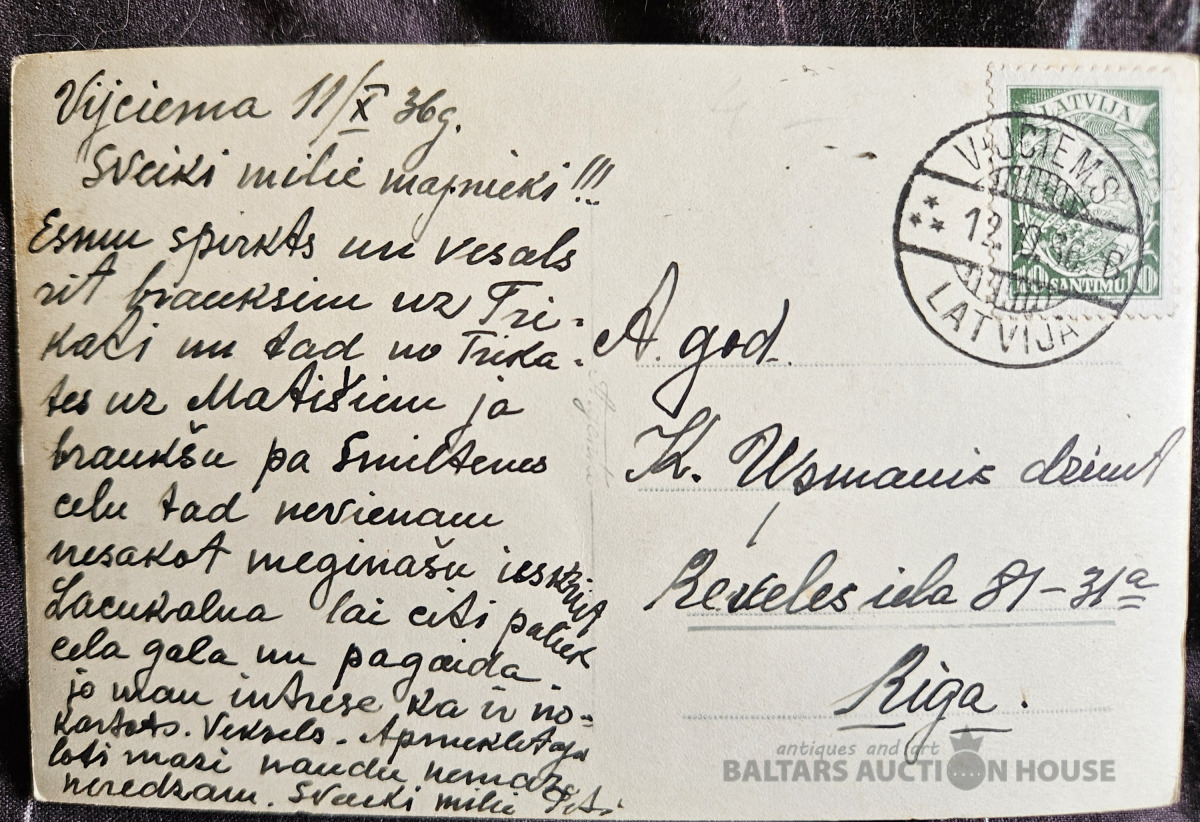 Vijciema 11/X 36g.
Sveiki milie majnieki!!!
Esmu spirkts un vesals
rit brauksim uz Tri-
kati un tad no Trika-
tes uz Matišiem ja
braukšu pa Smiltenes
celu tad nevienam
nesakot meginašu ieskriet
Lacukalna lai citi paliek
cela gala un pagaida
jo man intrese ka ir no-
kartots. Veksels. Apmekletaju
loti mazi naudu nemaz
neredzam. Sveiki milie
A. god.
K. Upmanis dzimt
Reveles iela 81-31a
Riga.
LATVIJA
10 SANTIMU 10
VIJCIEMS
12. X. 36 - B
LATVIJA
antiques and art
BALTARS AUCTION HOUSE